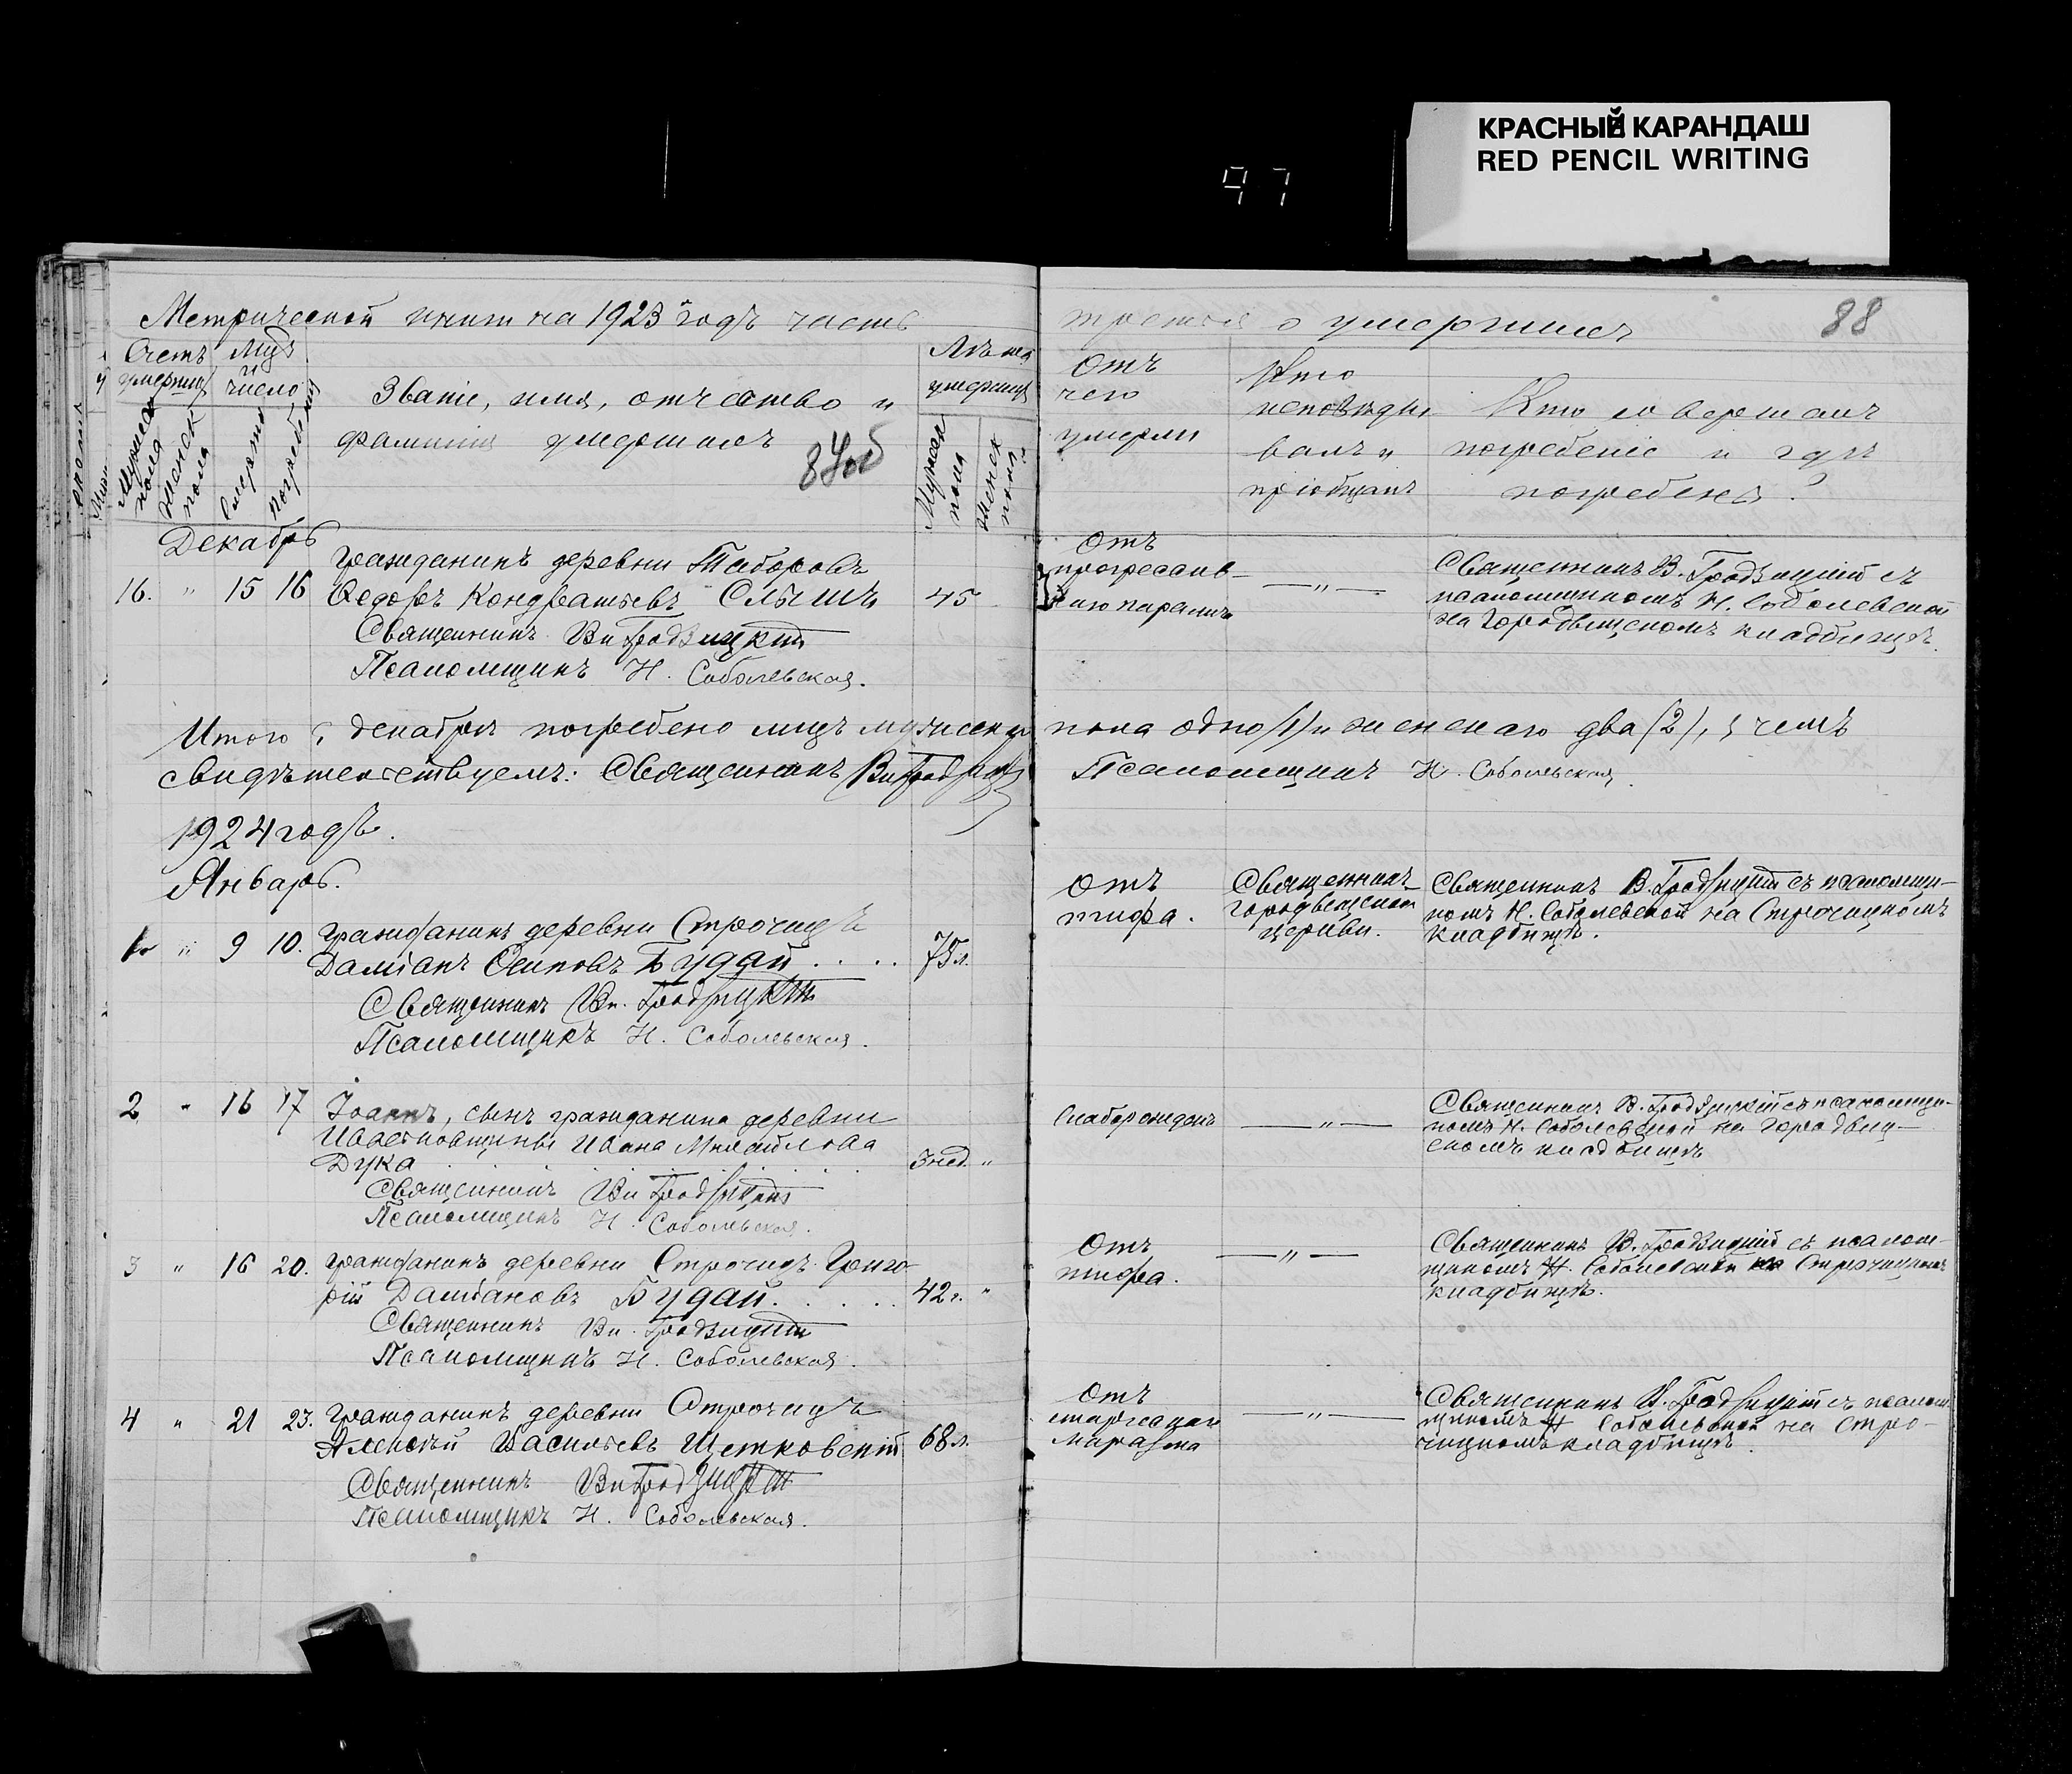 КРАСНЫЙ КАРАНДАШ
RED PENCIL WRITING
97
88
Метрической книги на 1923й годъ часть третья о умершихъ
Счетъ умершихъ
Мужеска пола
Женск пола
Мцъ и число
Смерти
Погребенія
Званіе, имя, отчество и
фамилія умершихъ
Лѣта умершихъ
Мужеск пола
Женск пола
Отъ
чего
умерли
Кто
исповѣды
валъ и
пріобщалъ
Кто совершалъ
погребеніе и гдѣ
погребены?
Декабрь
16. " 15 16
Гражданинъ деревни Таборовъ
Ѳедоръ Кондратьевъ Слышъ 45
Священникъ Вл Гродзицкій
Псаломщикъ Н. Соболевская.
Отъ
прогрессив-
наго паралича
—"—
Священникъ В. Гродзицкій съ
псаломщикомъ Н. Соболевской
на Городищскомъ кладбищѣ.
Итого въ декабрѣ погребено лицъ мужского пола одно (1) и женскаго два (2), въ чемъ
свидѣтельствуемъ: Священникъ Вл Гродзицкій Псаломщикъ Н. Соболевская.
1924 годъ.
Январь.
1 " 9 10.
Гражданинъ деревни Строчицъ
Даміанъ Осиповъ Будай . . . . 75 л.
Священникъ Вл. Гродзицкій
Псаломщикъ Н. Соболевская.
Отъ
тифа.
Священникъ
церкви.
Священникъ В. Гродзицкій съ псаломщи-
комъ Н. Соболевской на Строчицкомъ
кладбищѣ.
2 " 16 17
Іоаннъ, сынъ гражданина деревни
Ивана Михайлова
Дука 3 нед. "
Священникъ Вл Гродзицкій
Псаломщикъ Н. Соболевская.
—"—
Священникъ В. Гродзицкій съ псаломщи-
комъ Н. Соболевской на Городищ-
скомъ кладбищѣ
3 " 16 20.
Гражданинъ деревни Строчицъ Григо-
рій Даміановъ Будай. . . . . 42 г. "
Священникъ Вл. Гродзицкій
Псаломщикъ Н. Соболевская.
Отъ
тифа.
—"—
Священникъ В. Гродзицкій съ псалом-
щикомъ Н. Соболевской на Строчицкомъ
кладбищѣ.
4 " 21 23.
Гражданинъ деревни Строчицъ
Алексѣй Васильевъ Щетковскій 68 л.
Священникъ Вл Гродзицкій
Псаломщикъ Н. Соболевская.
Отъ
старческаго
маразма
—"—
Священникъ В. Гродзицкій съ псалом-
щикомъ Н Соболевской на Стро-
чицкомъ кладбищѣ.